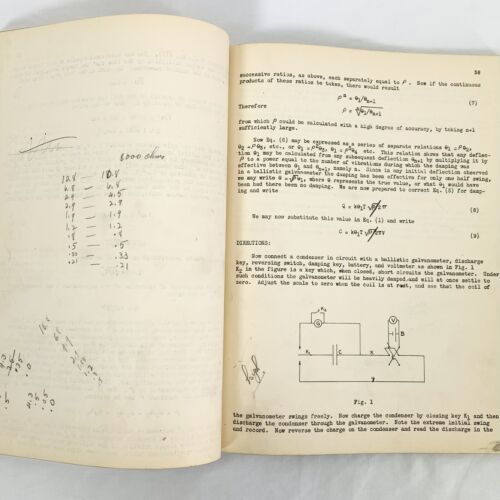 8000 ohms
12.8 — 10.8
6.8 — 6.8
2.9 — 2.9
1.9 — 1.9
1.2 — 1.2
.8 — .8
.5 — .5
.33 — .33
.21 — .21
38
successive ratios, as above, each separately equal to ρ. Now if the continuous
products of these ratios be taken, there would result
(7)
Therefore
from which ρ could be calculated with a high degree of accuracy, by taking n+1
sufficiently large.
Now Eq. (6) may be expressed as a series of separate relations θ1 = ρθ2,
etc., or
etc. This relation shows that any deflec-
tion θ1 may be calculated from any subsequent deflection θn+1 by multiplying it by
ρ to a power equal to the number of vibrations during which the damping was
effective between θ1 and θn+1, namely n. Since in any initial deflection observed
in a ballistic galvanometer the damping has been effective for only half swing,
we may write
where θ represents the true value, or what θ1 would have
been had there been no damping. We are now prepared to correct Eq. (5) for damp-
ing and write
(8)
We may now substitute this value in Eq. (1) and write
(9)
DIRECTIONS:
Now connect a condenser in circuit with a ballistic galvanometer, discharge
key, reversing switch, damping key, battery, and voltmeter as shown in Fig. 1
K2 in the figure is a key which, when closed, short circuits the galvanometer. Under
such conditions the galvanometer will be heavily damped and will at once settle to
zero. Adjust the scale to zero when the coil is at rest, and see that the coil of
K2
G
V
B
K1
C
X
Y
Fig. 1
the galvanometer swings freely. Now charge the condenser by closing key K1 and then
discharge the condenser through the galvanometer. Note the extreme initial swing
and record. Now reverse the charge on the condenser and read the discharge in the